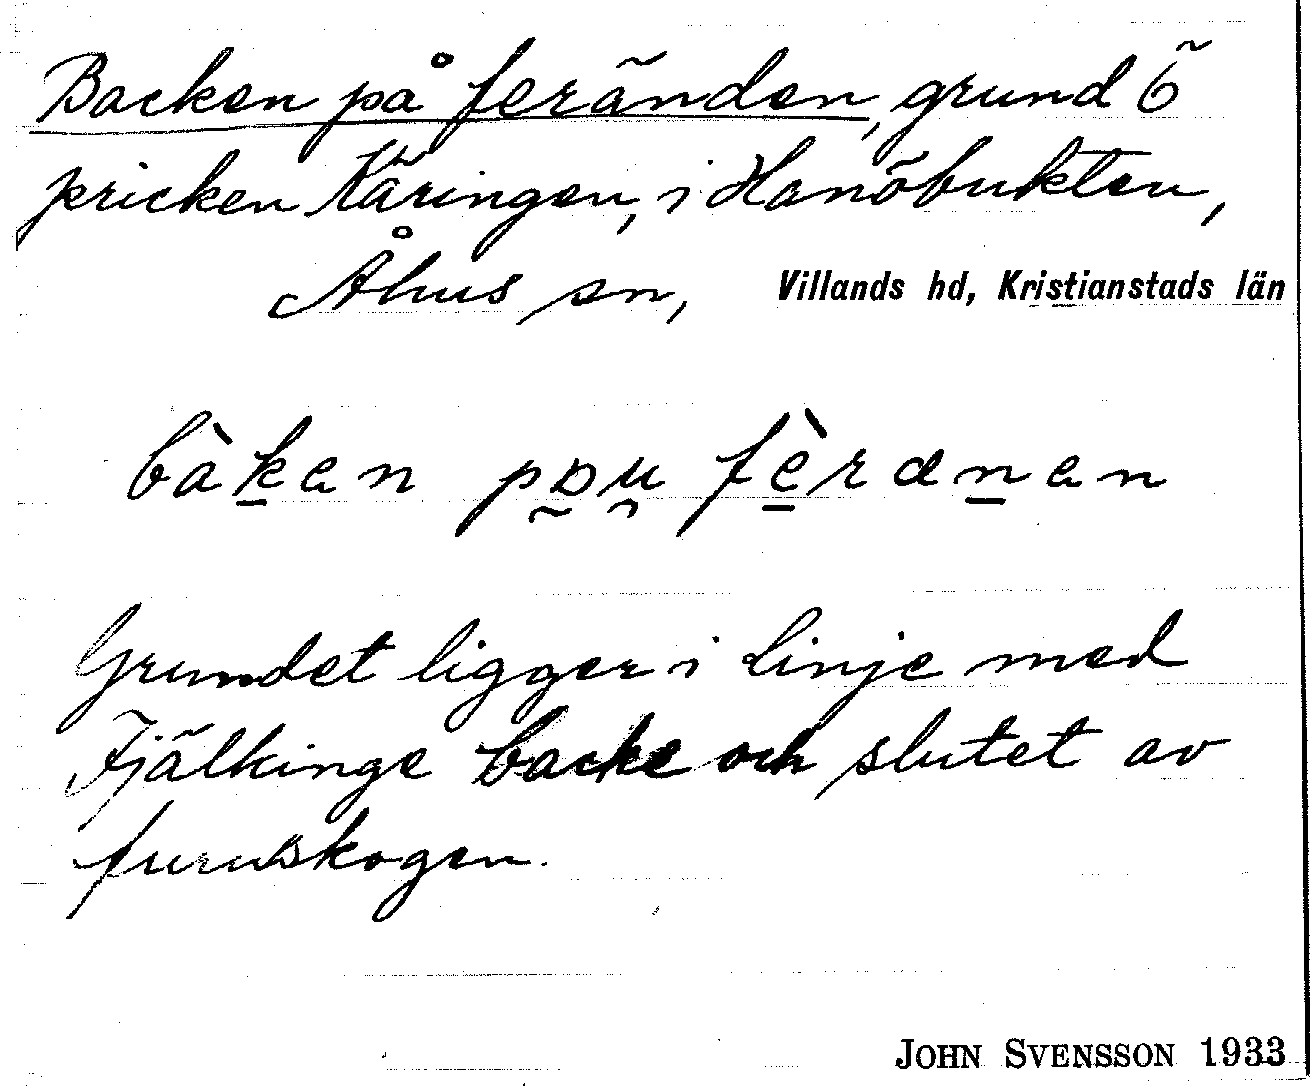 Backen på feränden, grund ö
pricken Käringen, i Hanöbukten,
Åhus sn, Villands hd, Kristianstads län
bàk̲en pɒ̰ṵ fè̲ræn̲en
Grundet ligger i linje med
Fjälkinge backe och slutet av
furuskogen.
JOHN SVENSSON 1933